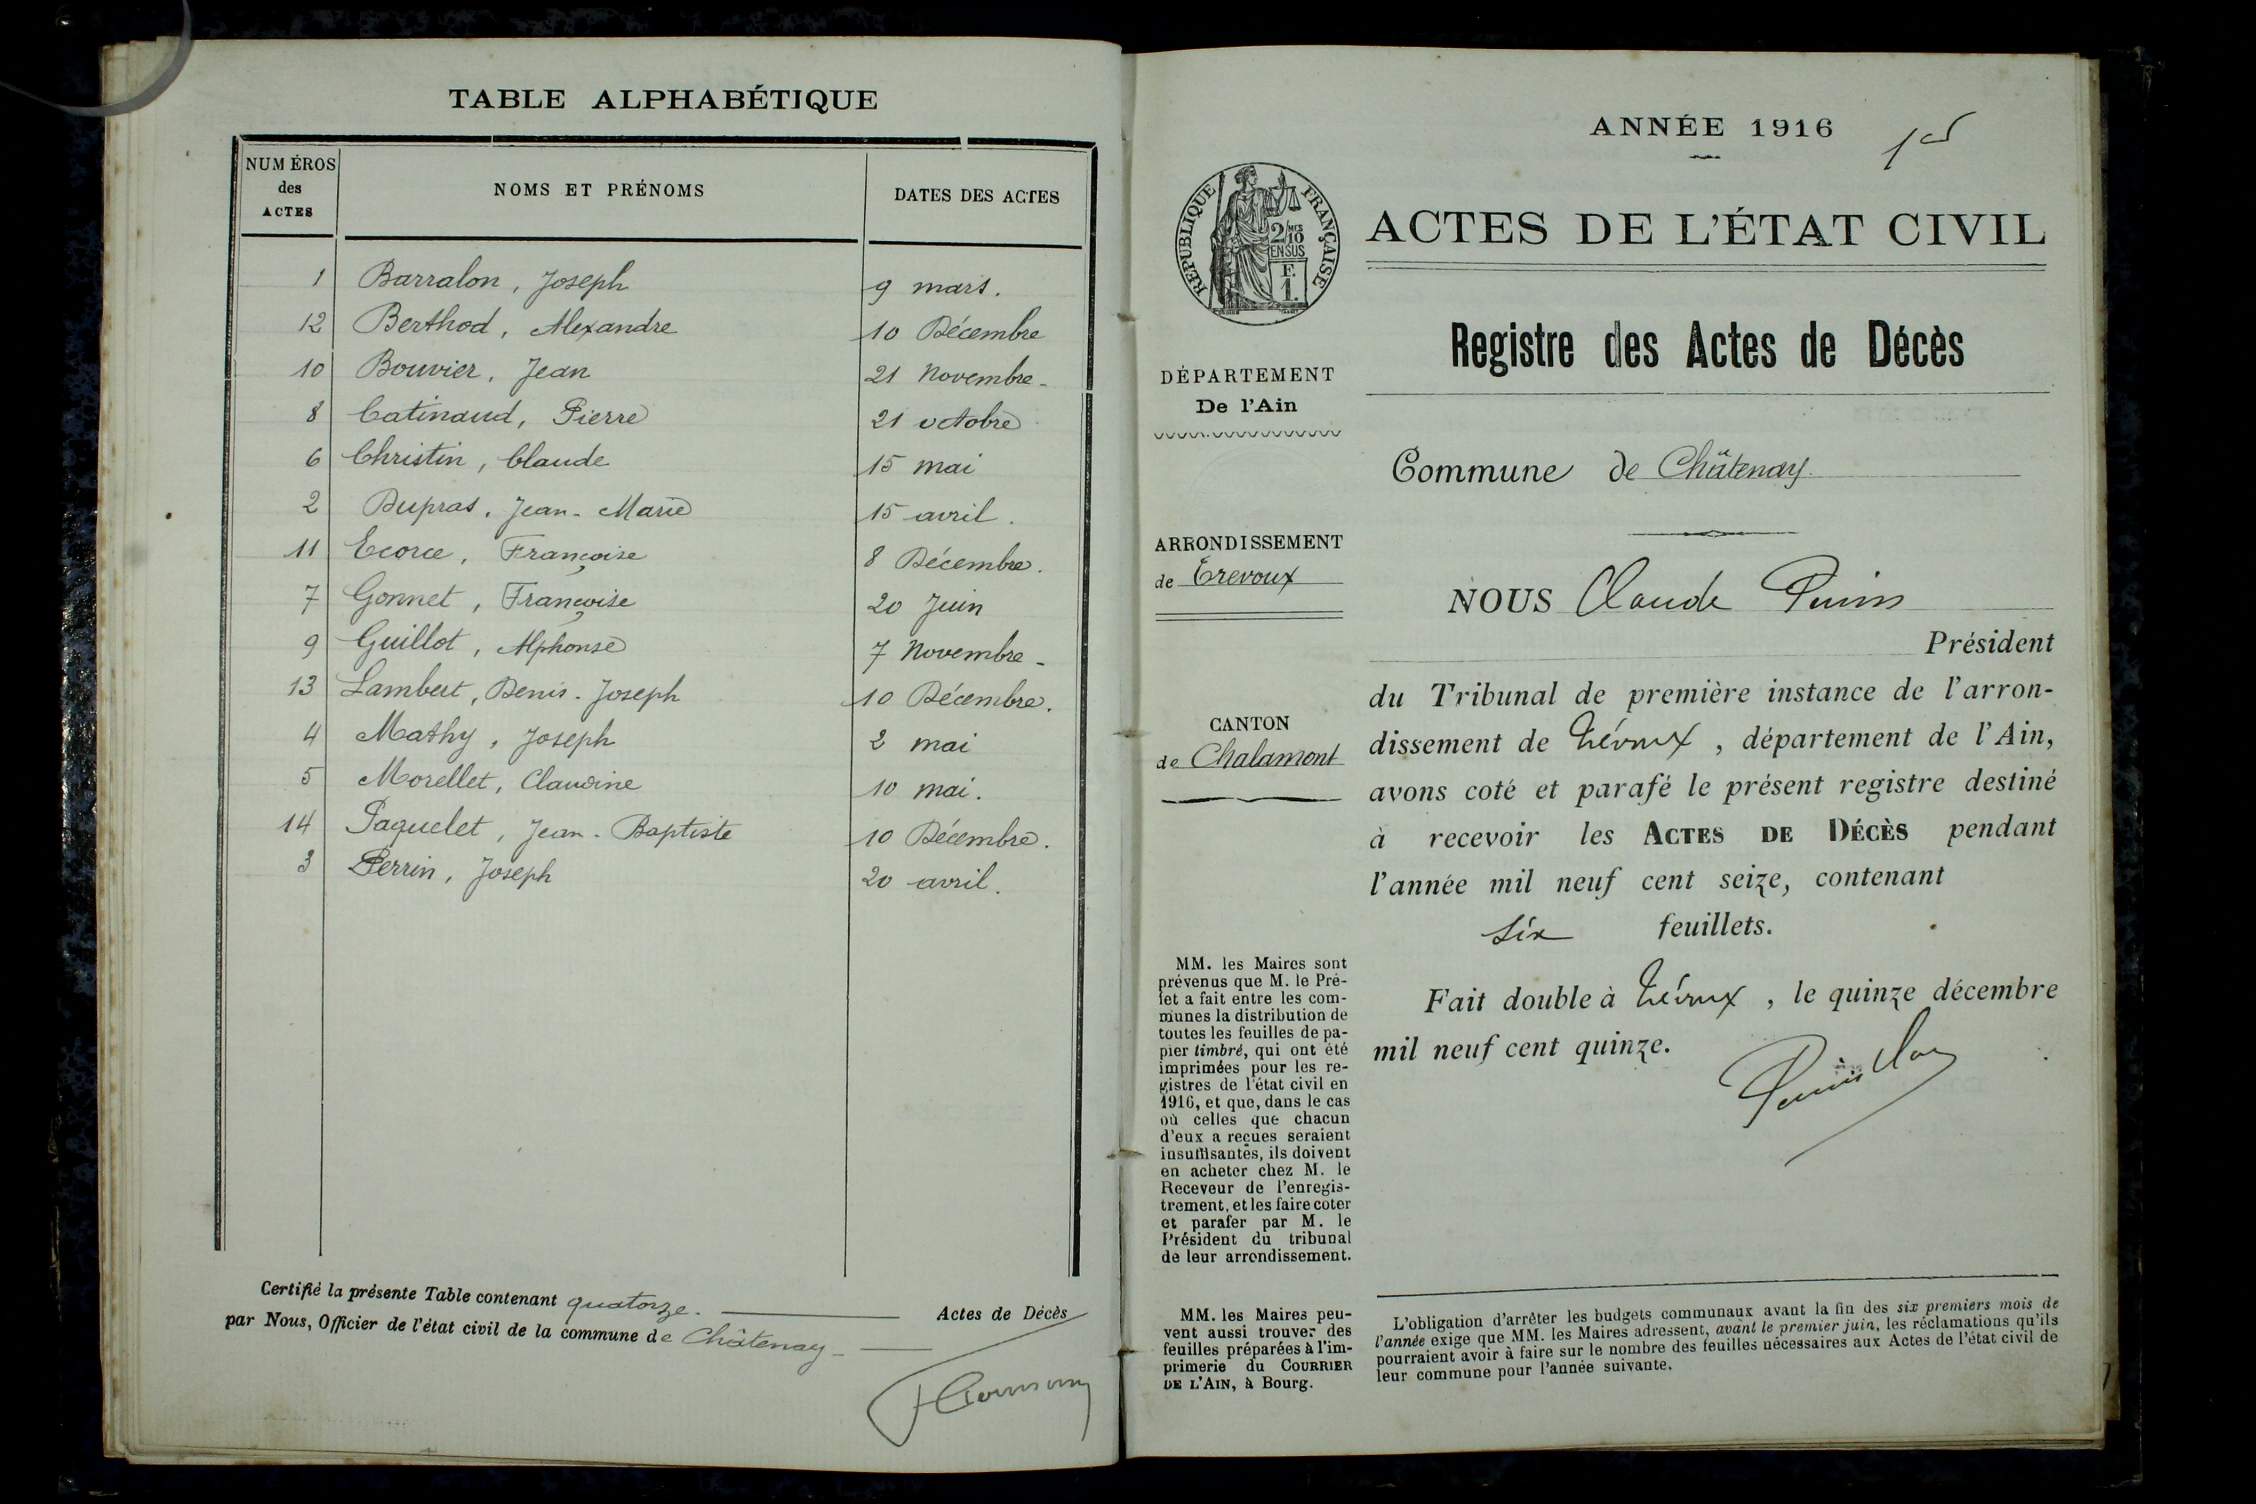 TABLE ALPHABÉTIQUE
NUMÉROS des ACTES
NOMS ET PRÉNOMS
DATES DES ACTES
1 Barralon, Joseph 9 mars.
12 Berthod, Alexandre 10 Décembre
10 Bouvier, Jean 21 Novembre-
8 Catinaud, Pierre 21 octobre
6 Christin, Claude 15 mai
2 Dupras, Jean-Marie 15 avril.
11 Ecorce, Françoise 8 Décembre.
7 Gonnet, Françoise 20 Juin
9 Guillot, Alphonse 7 Novembre-
13 Lambert, Denis-Joseph 10 Décembre.
4 Mathy, Joseph 2 mai
5 Morellet, Claudine 10 mai.
14 Paquelet, Jean-Baptiste 10 Décembre.
3 Perrin, Joseph 20 avril.
Certifié la présente Table contenant quatorze. Actes de Décès
par Nous, Officier de l'état civil de la commune de Châtenay-
ANNÉE 1916
ACTES DE L'ÉTAT CIVIL
RÉPUBLIQUE FRANÇAISE
2/10
MES
EN SUS
F.
1.
Registre des Actes de Décès
DÉPARTEMENT
De l'Ain
Commune de Châtenay.
ARRONDISSEMENT
de Trevoux
CANTON
de Chalamont
NOUS Claude
Président
du Tribunal de première instance de l'arron-
dissement de Trévoux, département de l'Ain,
avons coté et parafé le présent registre destiné
à recevoir les ACTES DE DÉCÈS pendant
l'année mil neuf cent seize, contenant
six feuillets.
Fait double à Trévoux, le quinze décembre
mil neuf cent quinze.
MM. les Maires sont
prévenus que M. le Pré-
fet a fait entre les com-
munes la distribution de
toutes les feuilles de pa-
pier timbré, qui ont été
imprimées pour les re-
gistres de l'état civil en
1916, et que, dans le cas
où celles que chacun
d'eux a reçues seraient
insuffisantes, ils doivent
en acheter chez M. le
Receveur de l'enregis-
trement, et les faire coter
et parafer par M. le
Président du tribunal
de leur arrondissement.
MM. les Maires peu-
vent aussi trouver des
feuilles préparées à l'im-
primerie du COURRIER
DE L'AIN, à Bourg.
L'obligation d'arrêter les budgets communaux avant la fin des six premiers mois de
l'année exige que MM. les Maires adressent, avant le premier juin, les réclamations qu'ils
pourraient avoir à faire sur le nombre des feuilles nécessaires aux Actes de l'état civil de
leur commune pour l'année suivante.